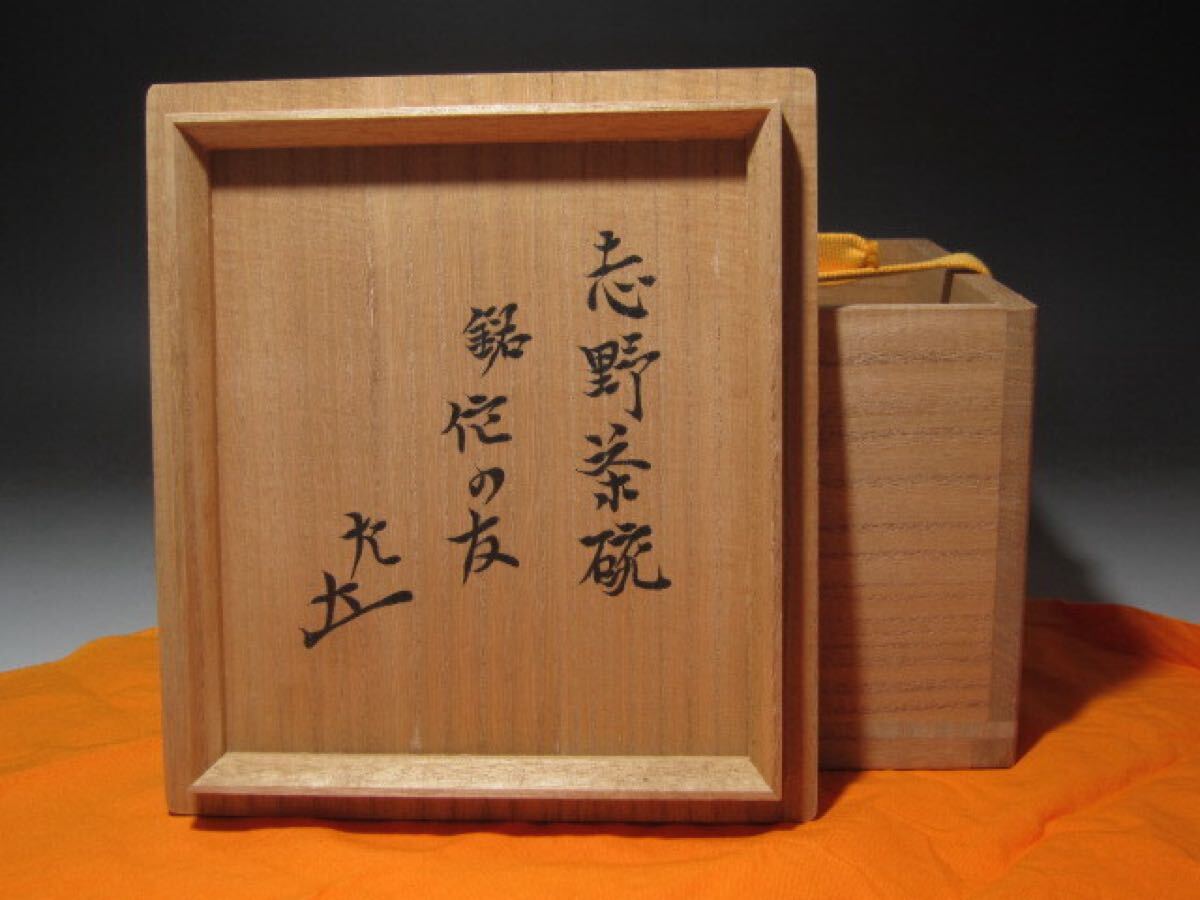 志野茶碗
銘 侘の友